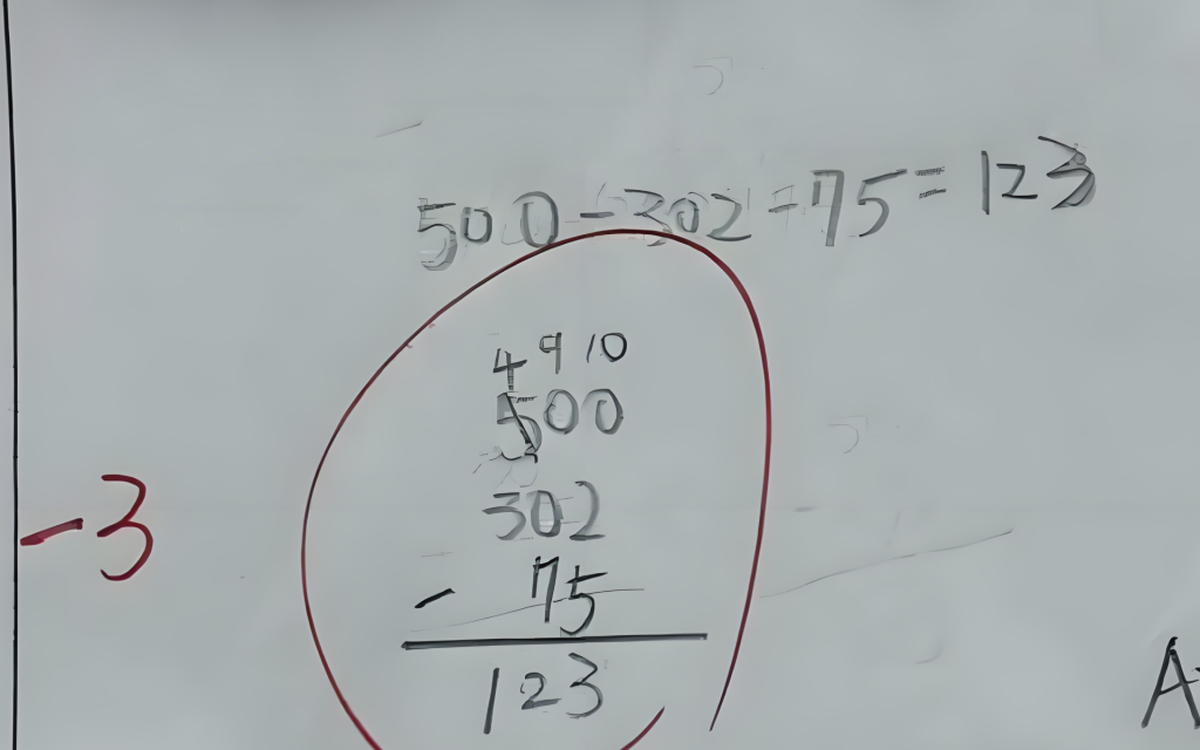 500-302-75=123
4 9 10
500
302
-3
- 75
123
A